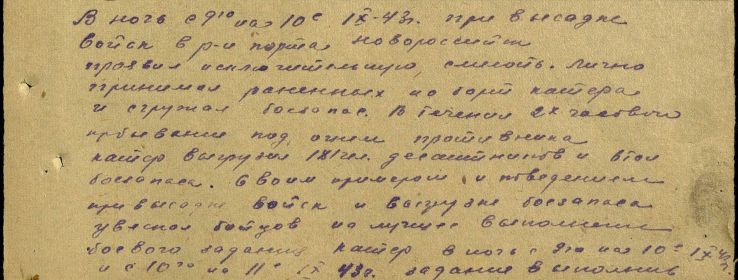 В ночь с 9го на 10е IX-43г. при высадке
войск в р-н порта Новороссийск
проявил исключительную смелость. Лично
принимал раненных на борт катера
и сгружал боезапас. В течении 2х часового
пребывание под огнем противника
катер выгрузил чел. десантников и
боезапаса. Своим примером и поведением
при высадке войск и выгрузке боезапаса
увлекал бойцов на лучшее выполнение
боевого задания катер в ночь с 9го на 10е IX 43г.
и с 10го на 11е IX 43г. задание выполнив